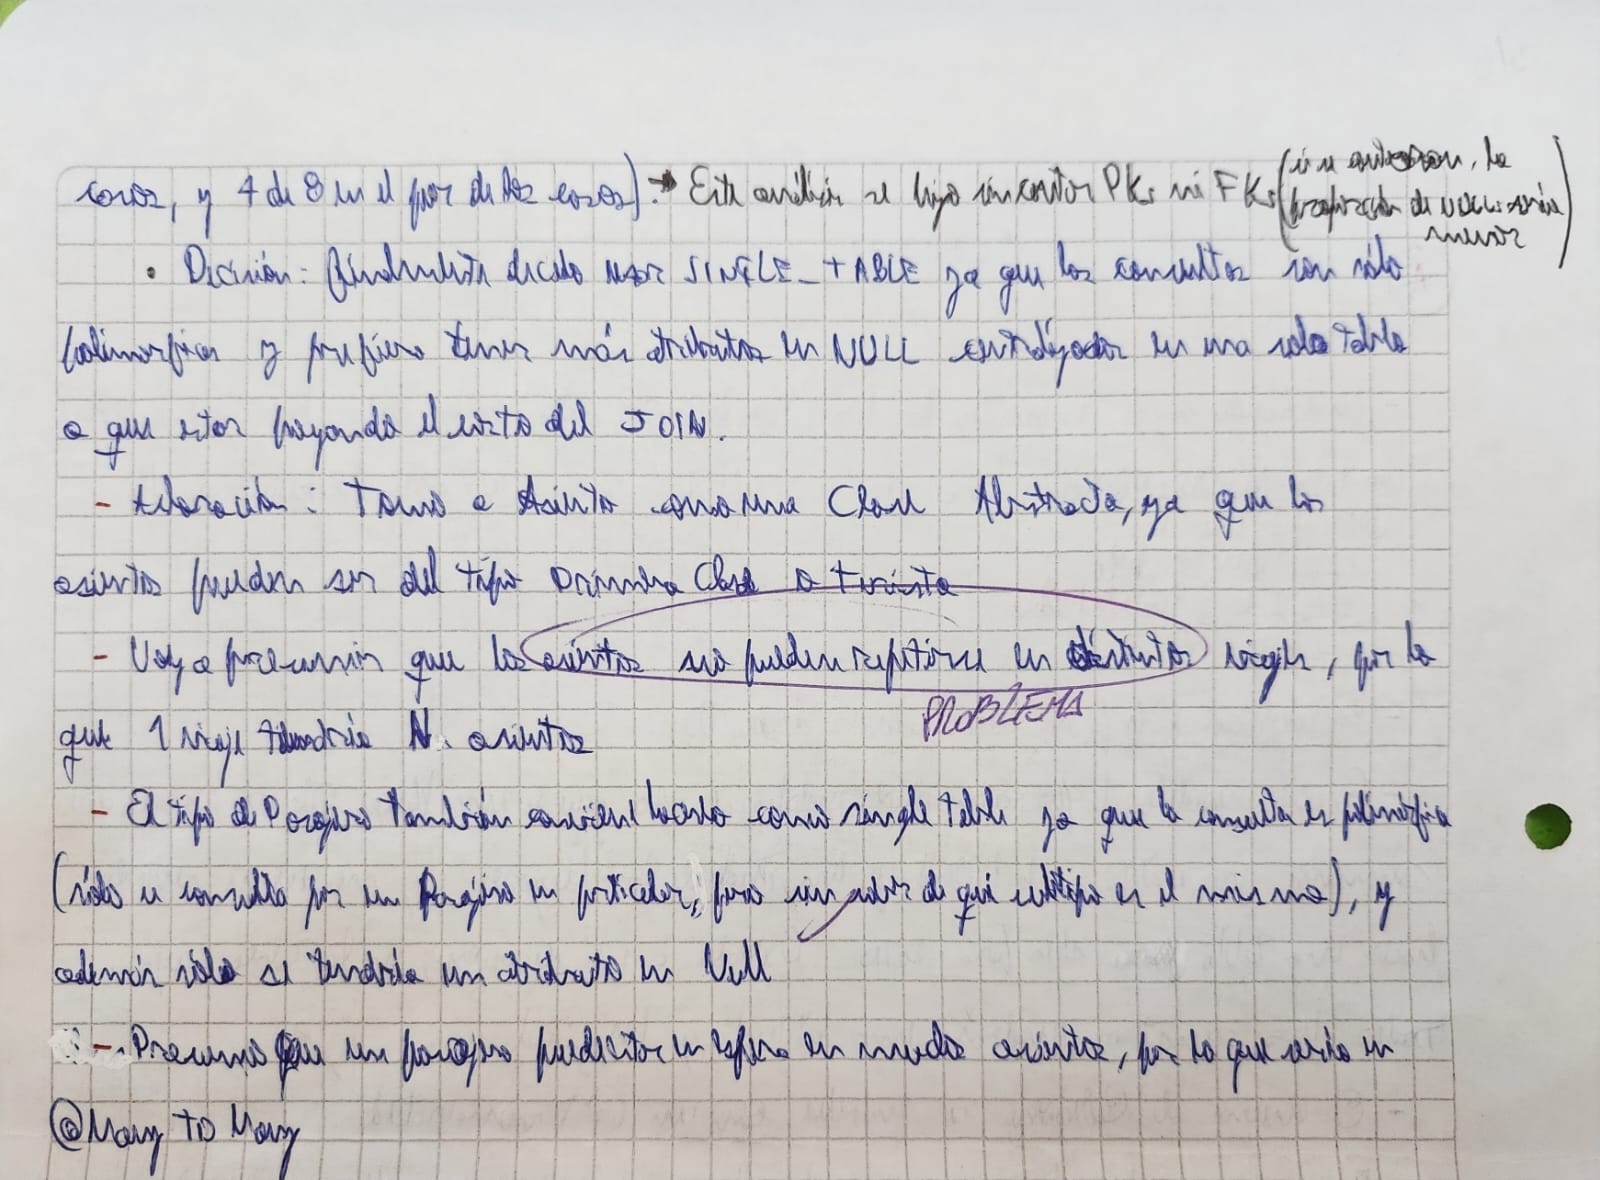 casos, y 4 de 8 en el peor de los casos). → Este análisis se hizo sin contar PKs ni FKs (si se contasen, la
proporción de NULLs sería
menor)
• Decisión: Finalmente decido usar SINGLE_TABLE ya que las consultas son sólo
polimórficas y prefiero tener más atributos en NULL centralizados en una sola tabla
a que estar pagando el costo del JOIN.
- Aclaración: Tomo a Asiento como una Clase Abstracta, ya que los
asientos pueden ser del tipo Primera Clase o turista
- Voy a presumir que los asientos no pueden repetirse en distintos viajes, por lo
PROBLEMA
que 1 viaje tendría N asientos
- El tipo de Pasajero también conviene hacerlo como single table ya que la consulta es polimórfica
(sólo se consulta por un Pasajero en particular, pero sin saber de qué subtipo es el mismo), y
además sólo se tendría un atributo en Null
- Presumo que un pasajero puede estar en espera en muchos asientos, por lo que sería un
@Many To Many